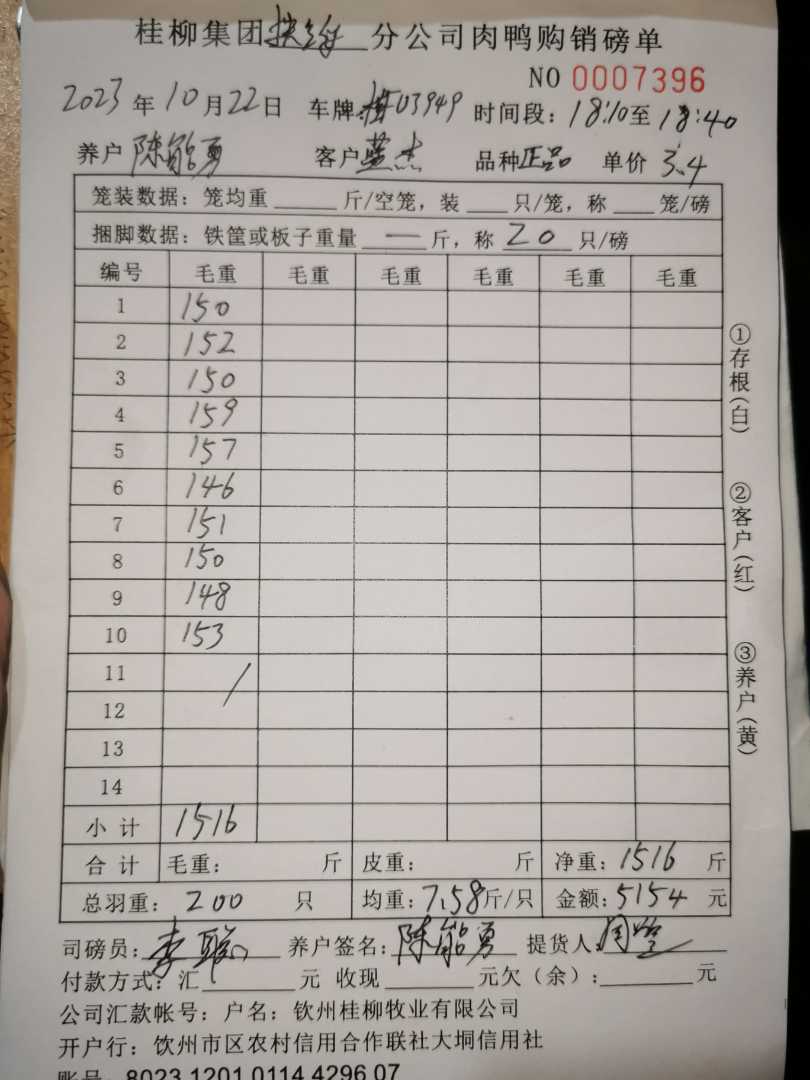 桂柳集团 分公司肉鸭购销磅单
NO 0007396
2023年10月22日 车牌:桂U3949 时间段:18:10至18:40
养户陈能勇 客户蓝杰 品种正品 单价3.4
笼装数据:笼均重____斤/空笼,装___只/笼,称___笼/磅
捆脚数据:铁筐或板子重量 — 斤,称20只/磅
编号 毛重 毛重 毛重 毛重 毛重 毛重
1 150
2 152
3 150
4 159
5 157
6 146
7 151
8 150
9 148
10 153
11 /
12
13
14
小计 1516
合计 毛重: 斤 皮重: 斤 净重:1516斤
总羽重:200只 均重:7.58斤/只 金额:5154元
司磅员:李 养户签名:陈能勇 提货人:
付款方式:汇____元 收现____元欠(余):____元
公司汇款帐号:户名:钦州桂柳牧业有限公司
开户行:钦州市区农村信用合作联社大垌信用社
账号 8023 1201 0114 4296 07
①存根(白)
②客户(红)
③养户(黄)